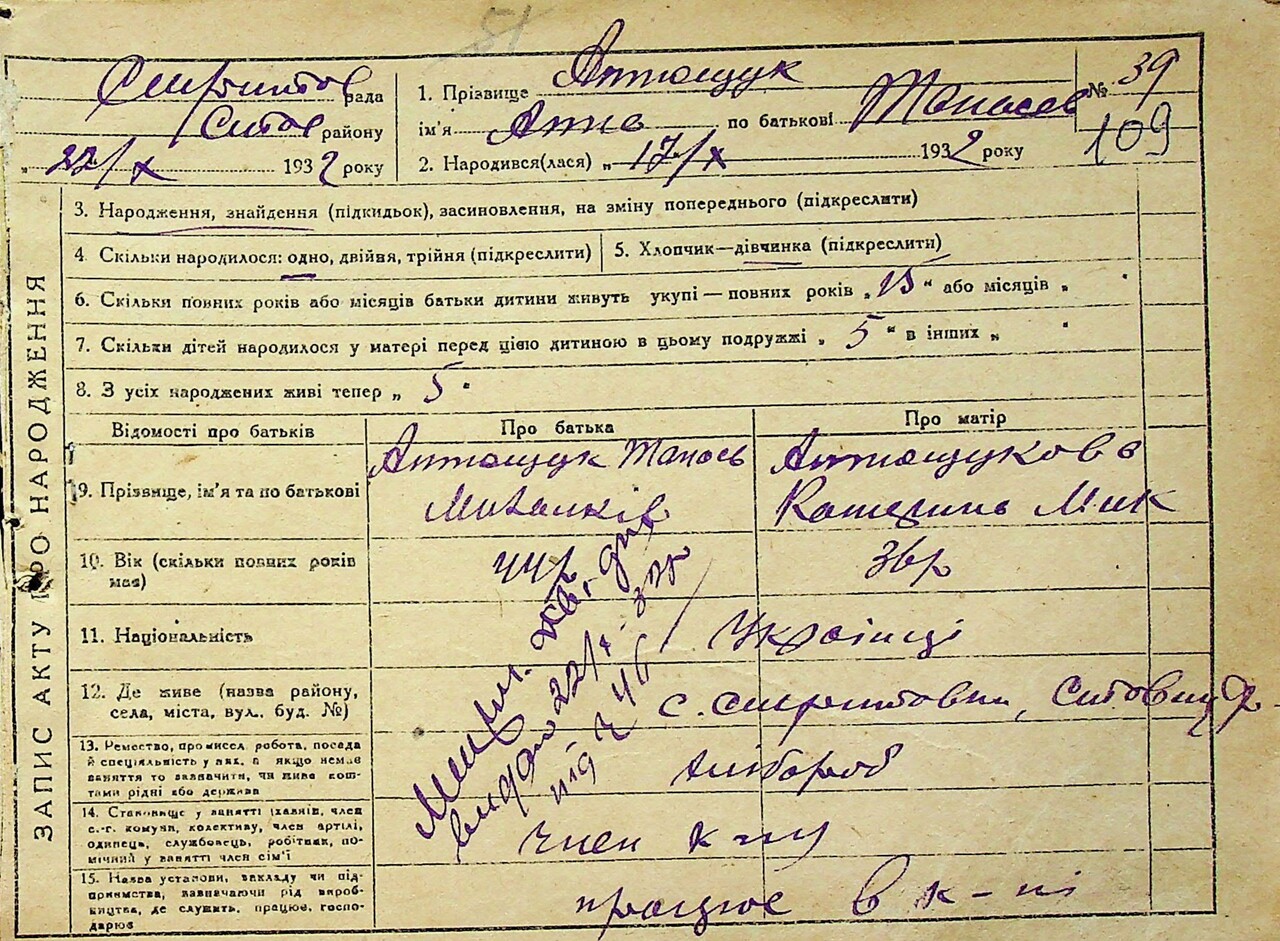 51
рада
району
„ 22/X 1932 року
1. Прізвище Антощук
ім'я Анна по батькові Танасев
2. Народився(лася) „ 17/X 1932 року
№ 39
109
ЗАПИС АКТУ ПРО НАРОДЖЕННЯ
3. Народження, знайдення (підкидьок), засиновлення, на зміну попереднього (підкреслити)
4. Скільки народилося: одно, двійня, трійня (підкреслити)
5. Хлопчик—дівчинка (підкреслити)
6. Скільки повних років або місяців батьки дитини живуть укупі — повних років „ 15 " або місяців „ "
7. Скільки дітей народилося у матері перед цією дитиною в цьому подружжі „ 5 " в інших „ "
8. З усіх народжених живі тепер „ 5 "
Відомості про батьків
Про батька
Про матір
9. Прізвище, ім'я та по батькові
Антощук Танась
Антощукова
Катерина Мик
10. Вік (скільки повних років має)
44р
36р
11. Національність
Українці
12. Де живе (назва району,
села, міста, вул., буд. №)
13. Ремество, промисел, робота, посада
й спеціяльність у них, а якщо немає
заняття то зазначити, чи живе кош-
тами рідні або держави
хлібороб
14. Становище у занятті (хазяїн, член
с.-г. комуни, колективу, член артілі,
одинець, службовець, робітник, по-
мічний у занятті член сім'ї
член к-пу
15. Назва установи, закладу чи під-
приємства, зазначаючи рід вироб-
ництва, де служить, працює, госпо-
дарює
працює в к-пі
видано 22/X 32р
під № 46